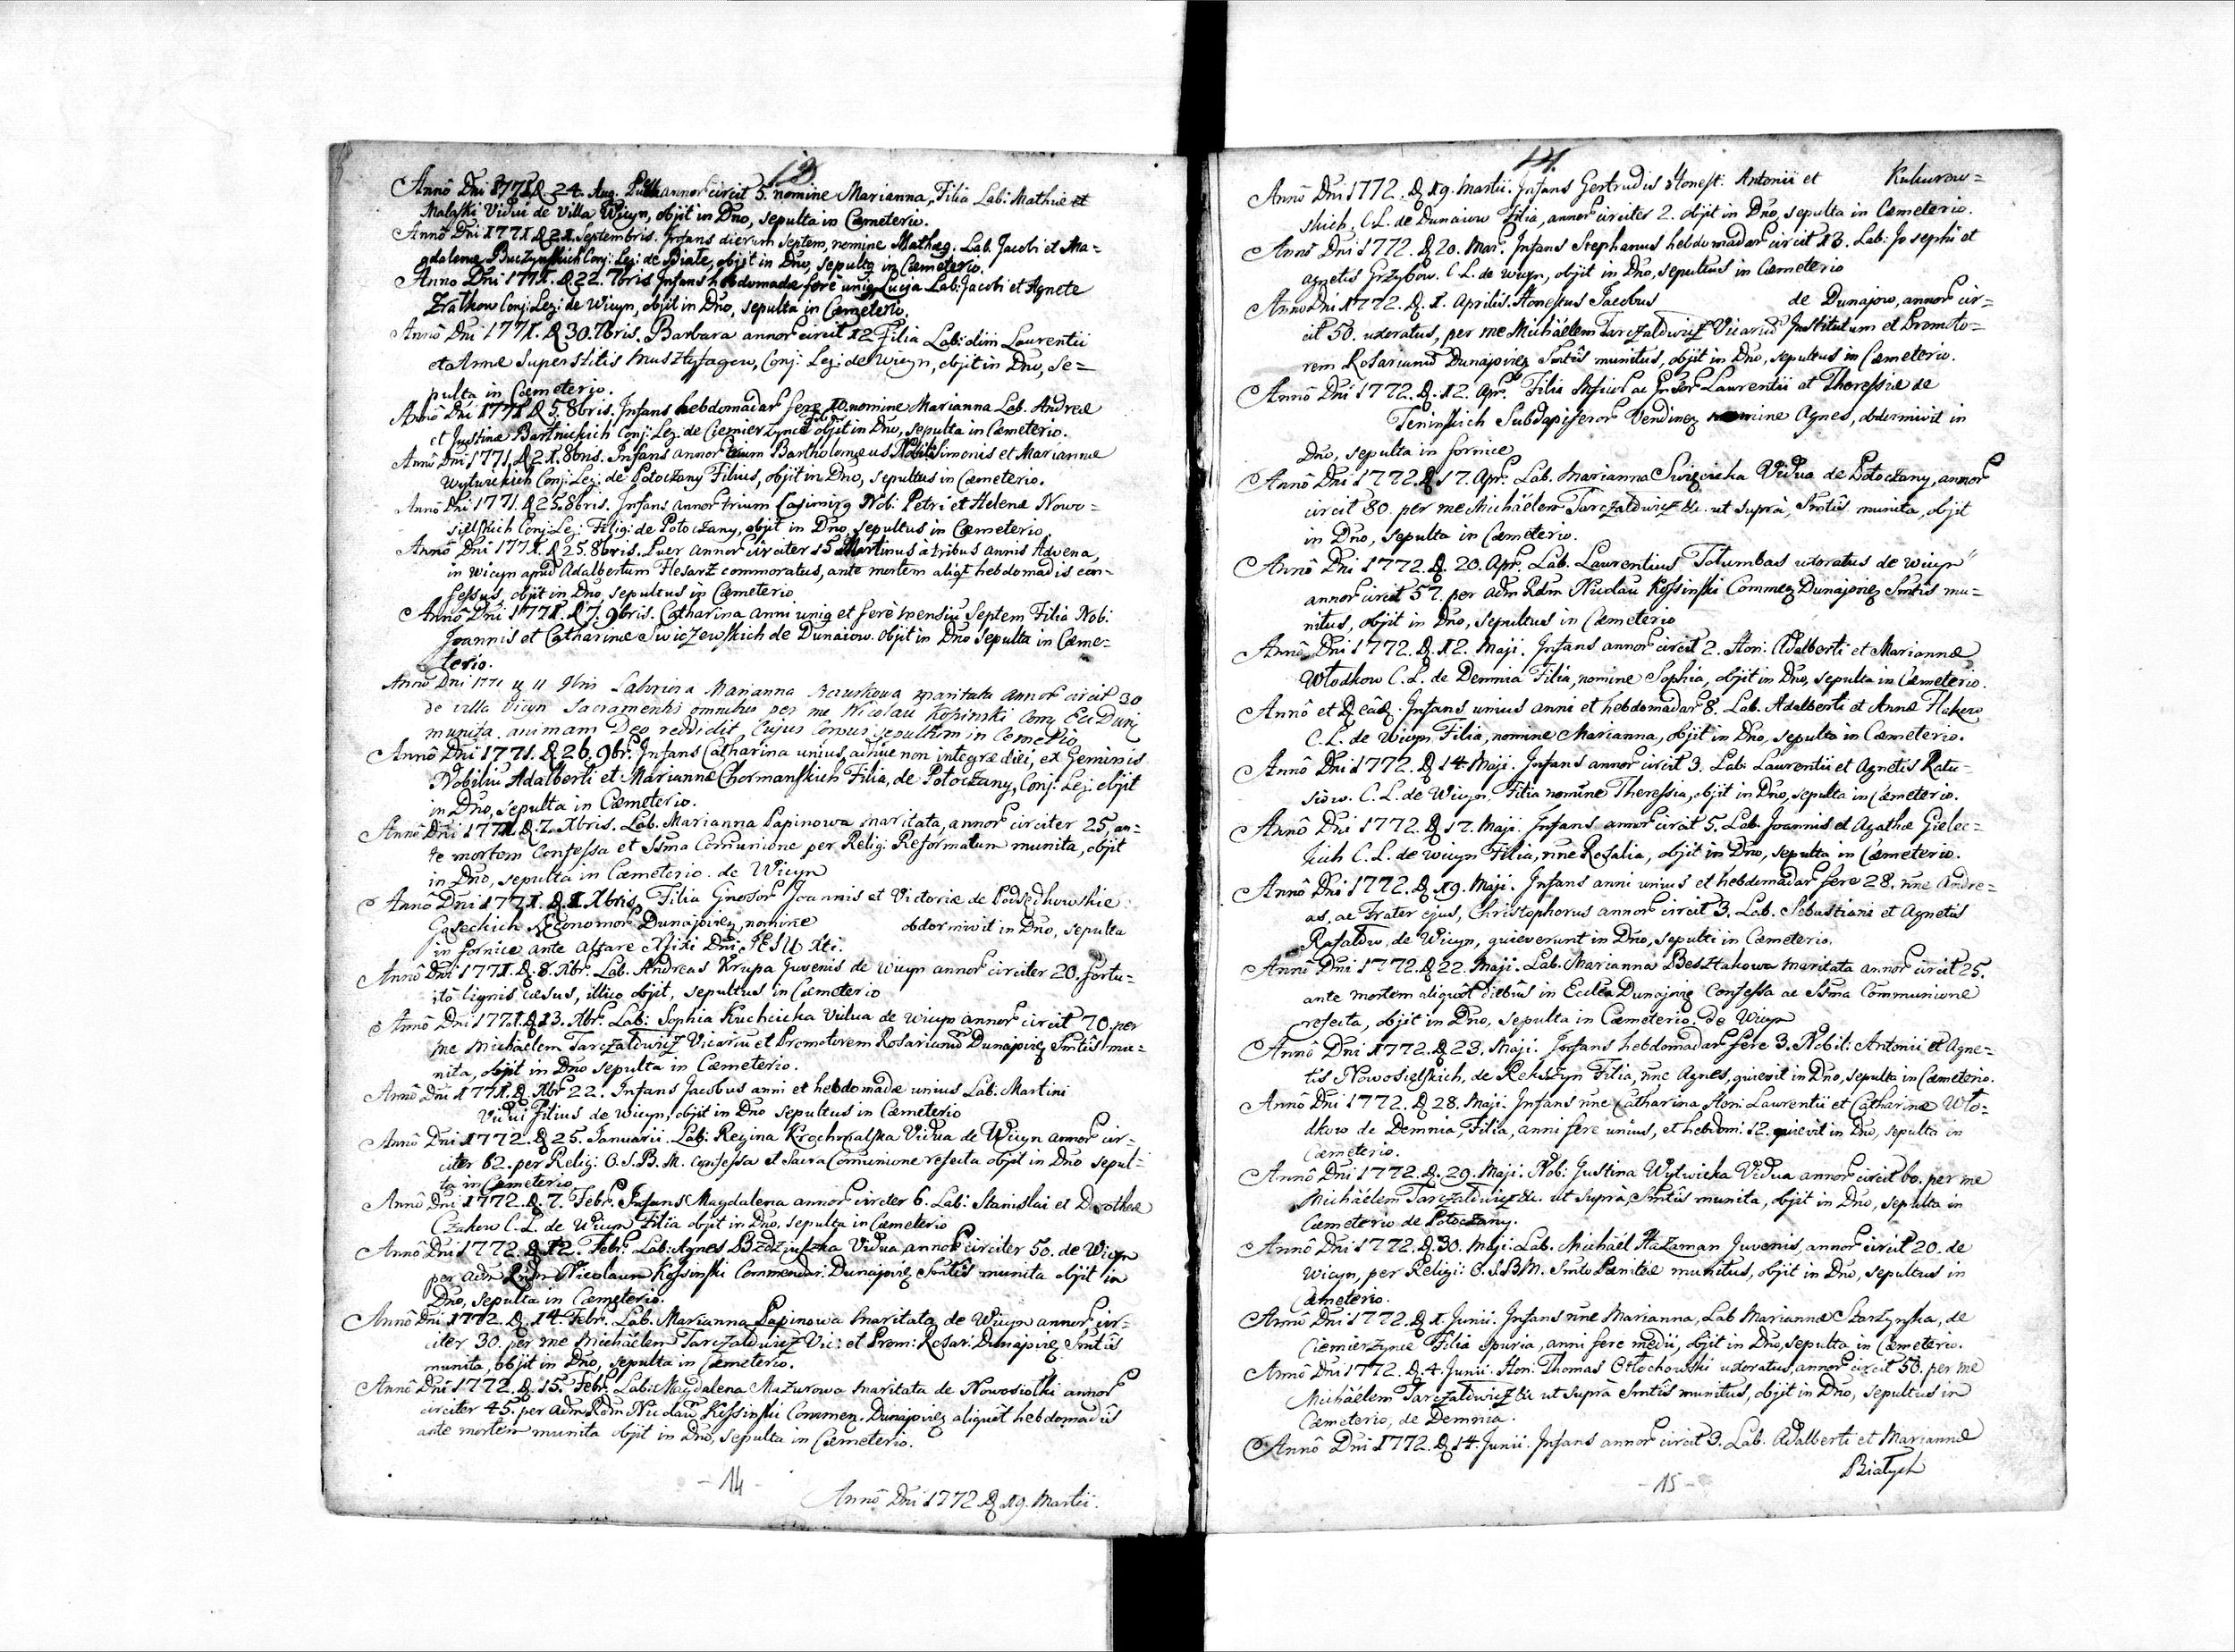 13
Annô Dni 1771 D 24. Aug. Puella annor circit 5. nomine Marianna, Filia Lab: Mathiæ et
Malaski Vidui de Villa Wicyn, objit in Dno, sepulta in Cæmeterio.
Annô Dni 1771 D 21. Septembris. Infans dierum septem, nomine Mathæg. Lab. Jacobi et Ma=
gdalenæ Buczynskich Conj: Leg: de Biale, objit in Dno, sepultg in Cæmeterio.
Anno Dni 1771. D. 22. 7bris Infans hebdomadæ ferè unig Lucya Lab: Jacobi et Agnete
Zralkow Conj: Leg: de Wicyn, objit in Dno, sepulta in Cæmeterio.
Annô Dni 1771. D 30. 7bris. Barbara annor circit 12 Filia Lab: olim Laurentii
et Annæ Superstitis Musztyfagow, Conj: Leg: de Wicyn, objit in Dno, Se=
pulta in Cæmeterio.
Annô Dni 1771 D 5. 8bris. Infans hebdomadar fere 10. nomine Marianna Lab. Andreæ
et Justinæ Bartnickich Conj: Leg. de Ciemierzynce objit in Dno, sepulta in Cæmeterio.
Annô Dni 1771. D 21. 8bris. Infans annor trium Bartholomæus Nobili Simonis et Mariannæ
Wytwickich Conj: Leg: de Potoczany Filius, objit in Dno, sepultus in Cæmeterio.
Annô Dni 1771. D 25. 8bris. Infans annor trium Casimirg Nob: Petri et Helenæ Nowo=
sielskich Conj: Leg: Filig: de Potoczany, objit in Dno, sepultus in Cæmeterio
Annô Dni 1771. D 25. 8bris. Puer annor circiter 15 Martinus à tribus annis Advena,
in Wicyn apud Adalbertum Hesarz commoratus, ante mortem aliqt hebdomadis con=
fessus, objit in Dno, sepultus in Cæmeterio
Annô Dni 1771. D 7. 9bris. Catharina anni unig et ferè mensiu septem Filia Nob:
Joannis et Catharinæ Swiczewskich de Dunaiow. Objit in Dno sepulta in Cæme=
terio.
Anno Dni 1771 D 11 9bris Laboriosa Marianna maritata annor circit 30
de villa Vicyn Sacramentis omnibus per me Nicolau Kossinski Com Ecl Dunj
munita animam Deo reddidit, Cujus Corpus sepultum in Cemeterio
Annô Dni 1771. D 26. 9br. Infans Catharina unius, adhuc non integræ diei, ex Geminis
Nobiliu Adalberti et Mariannæ Chormanskich Filia, de Potoczany, Conj: Leg: objit
in Dno, sepulta in Cæmeterio.
Annô Dni 1771. D 7. Xbris. Lab. Marianna Papinowa maritata, annor circiter 25, an=
te mortem Confessa et Ssma Comunione per Relig: Reformatum munita, objit
in Dno, sepulta in Cæmeterio. de Wicyn
Annô Dni 1771. D. Xbris, Filia Gnosor Joannis et Victoriæ de Podsędkowskie
Gąseckich Œconomor Dunajovieg, nomine obdormivit in Dno, sepulta
in fornice ante Altare Xfixi Dni JESU Xti.
Annô Dni 1771. D. 8. Xbr. Lab. Andreas Krupa Juvenis de Wicyn annor circiter 20. fortu=
itò lignis cæsus, illico objit, sepultus in Cæmeterio
Annô Dni 1771. D 13. Xbr. Lab: Sophia Kuchcicka Vidua de Wicyn annor circit 70. per
me Michaëlem Tarczałowicz Vicariu et Promotorem Rosarianu Dunajovieg Smtis mu=
nita, objit in Dno sepulta in Cæmeterio.
Annô Dni 1771. D. Xbr 22. Infans Jacobus anni et hebdomadæ unius Lab. Martini
Vidui Filius de Wicyn, objit in Dno sepultus in Cæmeterio
Annô Dni 1772. D 25. Januarii. Lab: Regina Krochmalska Vidua de Wicyn annor cir=
citer 62. per Relig: O.S.B.M. confessa et Sacra Comunione refecta objit in Dno sepul=
ta in Cæmeterio
Annô Dni 1772. D. 7. Febr. Infans Magdalena annor circiter 6. Lab: Stanislai et Dorotheæ
Czakow C. L. de Wicyn Filia objit in Dno, sepulta in Cæmeterio
Annô Dni 1772. D 12. Febr: Lab: Agnes Bzdziuszka Vidua annor circiter 50. de Wicyn
per adm Rndm Nicolaum Kossinski Commendar: Dunajovieg Smtis munita objit in
Dno, sepulta in Cæmeterio.
Annô Dni 1772. D. 14. Febr. Lab. Marianna Papinowa maritata de Wicyn annor cir=
citer 30. per me Michaëlem Tarczałowicz Vic: et Prom: Rosar: Dunajovieg Smtis
munita, objit in Dno, sepulta in Cæmeterio.
Annô Dni 1772. D. 15. Febr. Lab: Magdalena Mazurowa maritata de Nowosiolki annor
circiter 45. per Adm Rdm Nicolau Kossinski Commen. Dunajovieg aliquôt hebdomadis
ante mortem munita objit in Dno, sepulta in Cæmeterio.
- 14 -
Annô Dni 1772 D 19. Martii.
14.
Annô Dni 1772. D 19. Martii. Infans Gertrudis Honest: Antonii et Kukurow=
skich. C. L. de Dunaiow Filia, annor circiter 2. objit in Dno, sepulta in Cæmeterio.
Annô Dni 1772. D 20. Mar. Infans Stephanus hebdomadar circit 13. Lab: Josephi et
Agnetis Grzybow. C. L. de Wicyn, objit in Dno, sepultus in Cæmeterio
Anno Dni 1772. D. 1. Aprilis. Honestus Jacobus de Dunajow, annor cir=
cit 50. uxoratus, per me Michaëlem Tarczałowicz Vicariu Institutum et Promoto=
rem Rosarianu Dunajovieg Smtis munitus, objit in Dno, sepultus in Cæmeterio.
Annô Dni 1772. D. 12. Apr. Filia Mficor ac Gnsor Laurentii et Theressiæ de
Teninskich Subdapiferor Vendineg nomine Agnes, obdormivit in
Dno, sepulta in fornice
Annô Dni 1772. D 17. Apr. Lab. Marianna Swięcicka Vidua de Potoczany, annor
circit 80. per me Michaëlem Tarczałowicz &c. ut suprà, Smtis munita, objit
in Dno, sepulta in Cæmeterio.
Annô Dni 1772. D. 20. Apr. Lab. Laurentius Tołumbas uxoratus de Wicyn
annor circit 57. per adm Rdm Nicolau Kossinski Commeg Dunajovieg Smtis mu=
nitus, objit in Dno, sepultus in Cæmeterio
Annô Dni 1772. D. 12. Maji. Infans annor circit 2. Hon: Adalberti et Mariannæ
Włodkow C. L. de Demnia Filia, nomine Sophia, objit in Dno, sepulta in Cæmeterio.
Annô et D eâd. Infans unius anni et hebdomadar 8. Lab. Adalberti et Annæ Hakew
C. L. de Wicyn Filia, nomine Marianna, objit in Dno, sepulta in Cæmeterio.
Annô Dni 1772. D 14. Maji. Infans annor circit 3. Lab: Laurentii et Agnetis Ratu=
siow. C. L. de Wicyn, Filia nomine Theressia, objit in Dno, sepulta in Cæmeterio.
Annô Dni 1772. D 17. Maji. Infans annor circit 5. Lab. Joannis et Agathæ Gielec=
kich C. L. de Wicyn Filia, nne Rosalia, objit in Dno, sepulta in Cæmeterio.
Annô Dni 1772. D 19. Maji. Infans anni unius et hebdomadar fere 28. nne Andre=
as, ac Frater ejus, Christophorus annor circit 3. Lab. Sebastiani et Agnetis
Rafałow, de Wicyn, quieverunt in Dno, sepulti in Cæmeterio.
Annô Dni 1772. D 22. Maji. Lab. Marianna Besztakowa maritata annor circit 25.
ante mortem aliquôt diebus in Eccłea Dunajovieg Confessa ac Ssma Communione
refecta, objit in Dno, sepulta in Cæmeterio: de Wicyn
Annô Dni 1772. D 23. Maji. Infans hebdomadar fere 3. Nobil: Antonii et Agne=
tis Nowosielskich, de Rekszyn Filia, nne Agnes, quievit in Dno, sepulta in Cæmeterio.
Annô Dni 1772. D 28. Maji. Infans nne Catharina Hon: Laurentii et Catharinæ Wło=
dkow de Demnia, Filia, anni fere unius, et hebdom: 12. quievit in Dno, sepulta in
Cæmeterio.
Annô Dni 1772. D. 29. Maji. Nob: Justina Wytwicka Vidua annor circit 60. per me
Michaëlem Tarczałowicz &c. ut suprà, Smtis munita, objit in Dno, sepulta in
Cæmeterio de Potoczany.
Annô Dni 1772. D. 30. Maji. Lab. Michaël Hazaman Juvenis, annor circit 20. de
Wicyn, per Religi: O. S. B M. Smto Pænitæ munitus, objit in Dno, sepultus in
Cæmeterio.
Annô Dni 1772. D 1. Junii. Infans nne Marianna, Lab Mariannæ Starzynska, de
Ciemierzynce Filia spuria, anni fere medii, objit in Dno, sepulta in Cæmeterio.
Annô Dni 1772. D. 4. Junii. Hon: Thomas Ochochowski uxoratus, annor circit 50. per me
Michaëlem Tarczałowicz &c ut suprà Smtis munitus, objit in Dno, sepultus in
Cæmeterio, de Demnia.
Annô Dni 1772. D 14. Junii. Infans annor circit 3. Lab. Adalberti et Mariannæ
Białych
- 15 -